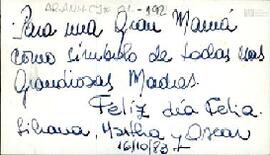 Para una Gran Mamá
como símbolo de todas las
Grandiosas Madres.
Feliz día Felia.
Liliana, Martha y Oscar
16/10/83